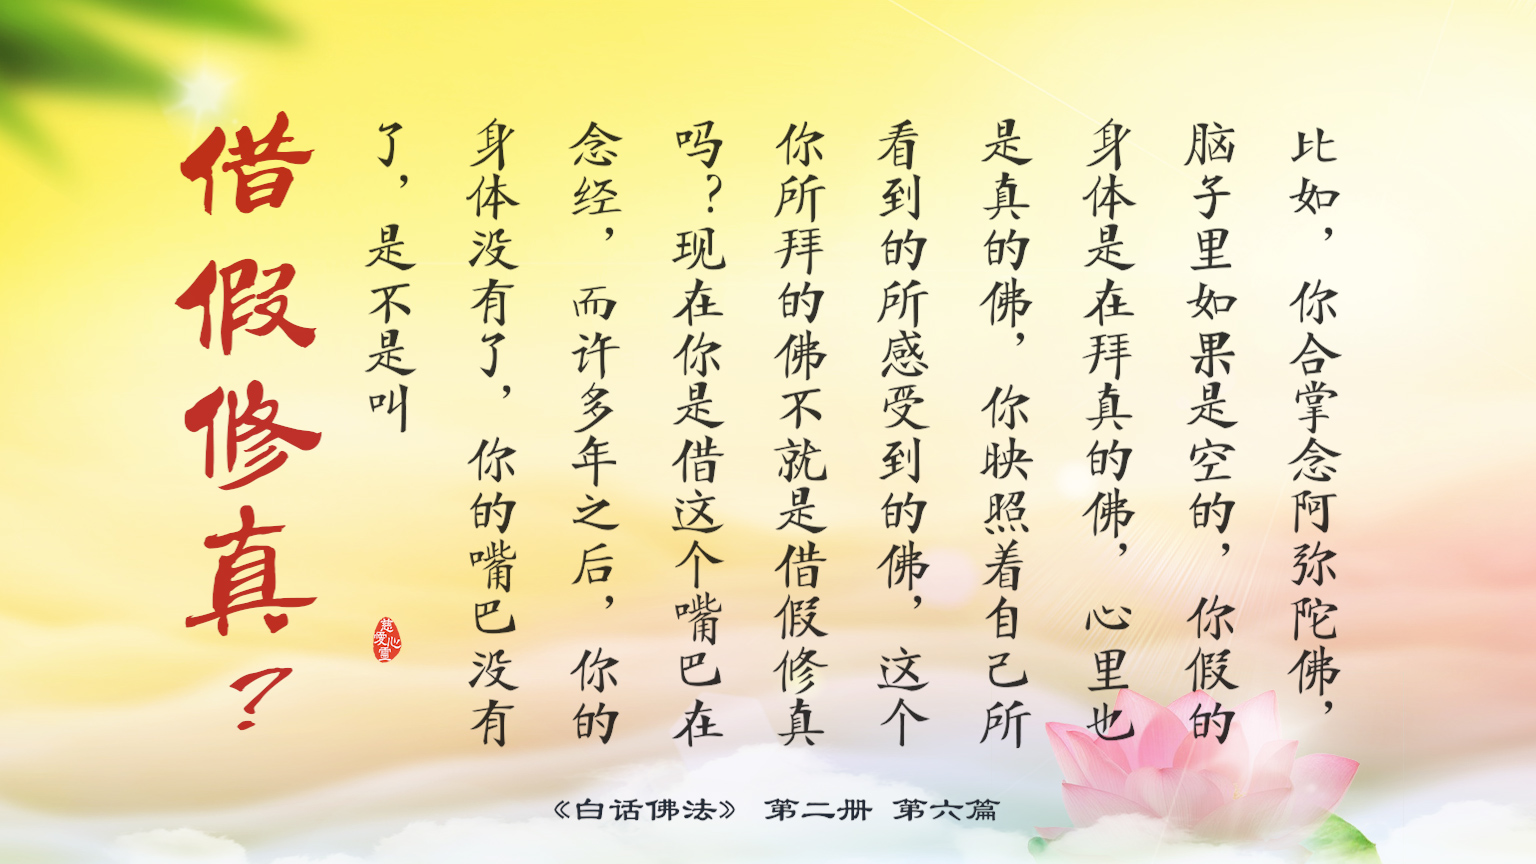 比如，你合掌念阿弥陀佛，
脑子里如果是空的，你假的
身体是在拜真的佛，心里也
是真的佛，你映照着自己所
看到的所感受到的佛，这个
你所拜的佛不就是借假修真
吗？现在你是借这个嘴巴在
念经，而许多年之后，你的
身体没有了，你的嘴巴没有
了，是不是叫
借假修真？
慈心
愛靈
《白话佛法》 第二册 第六篇